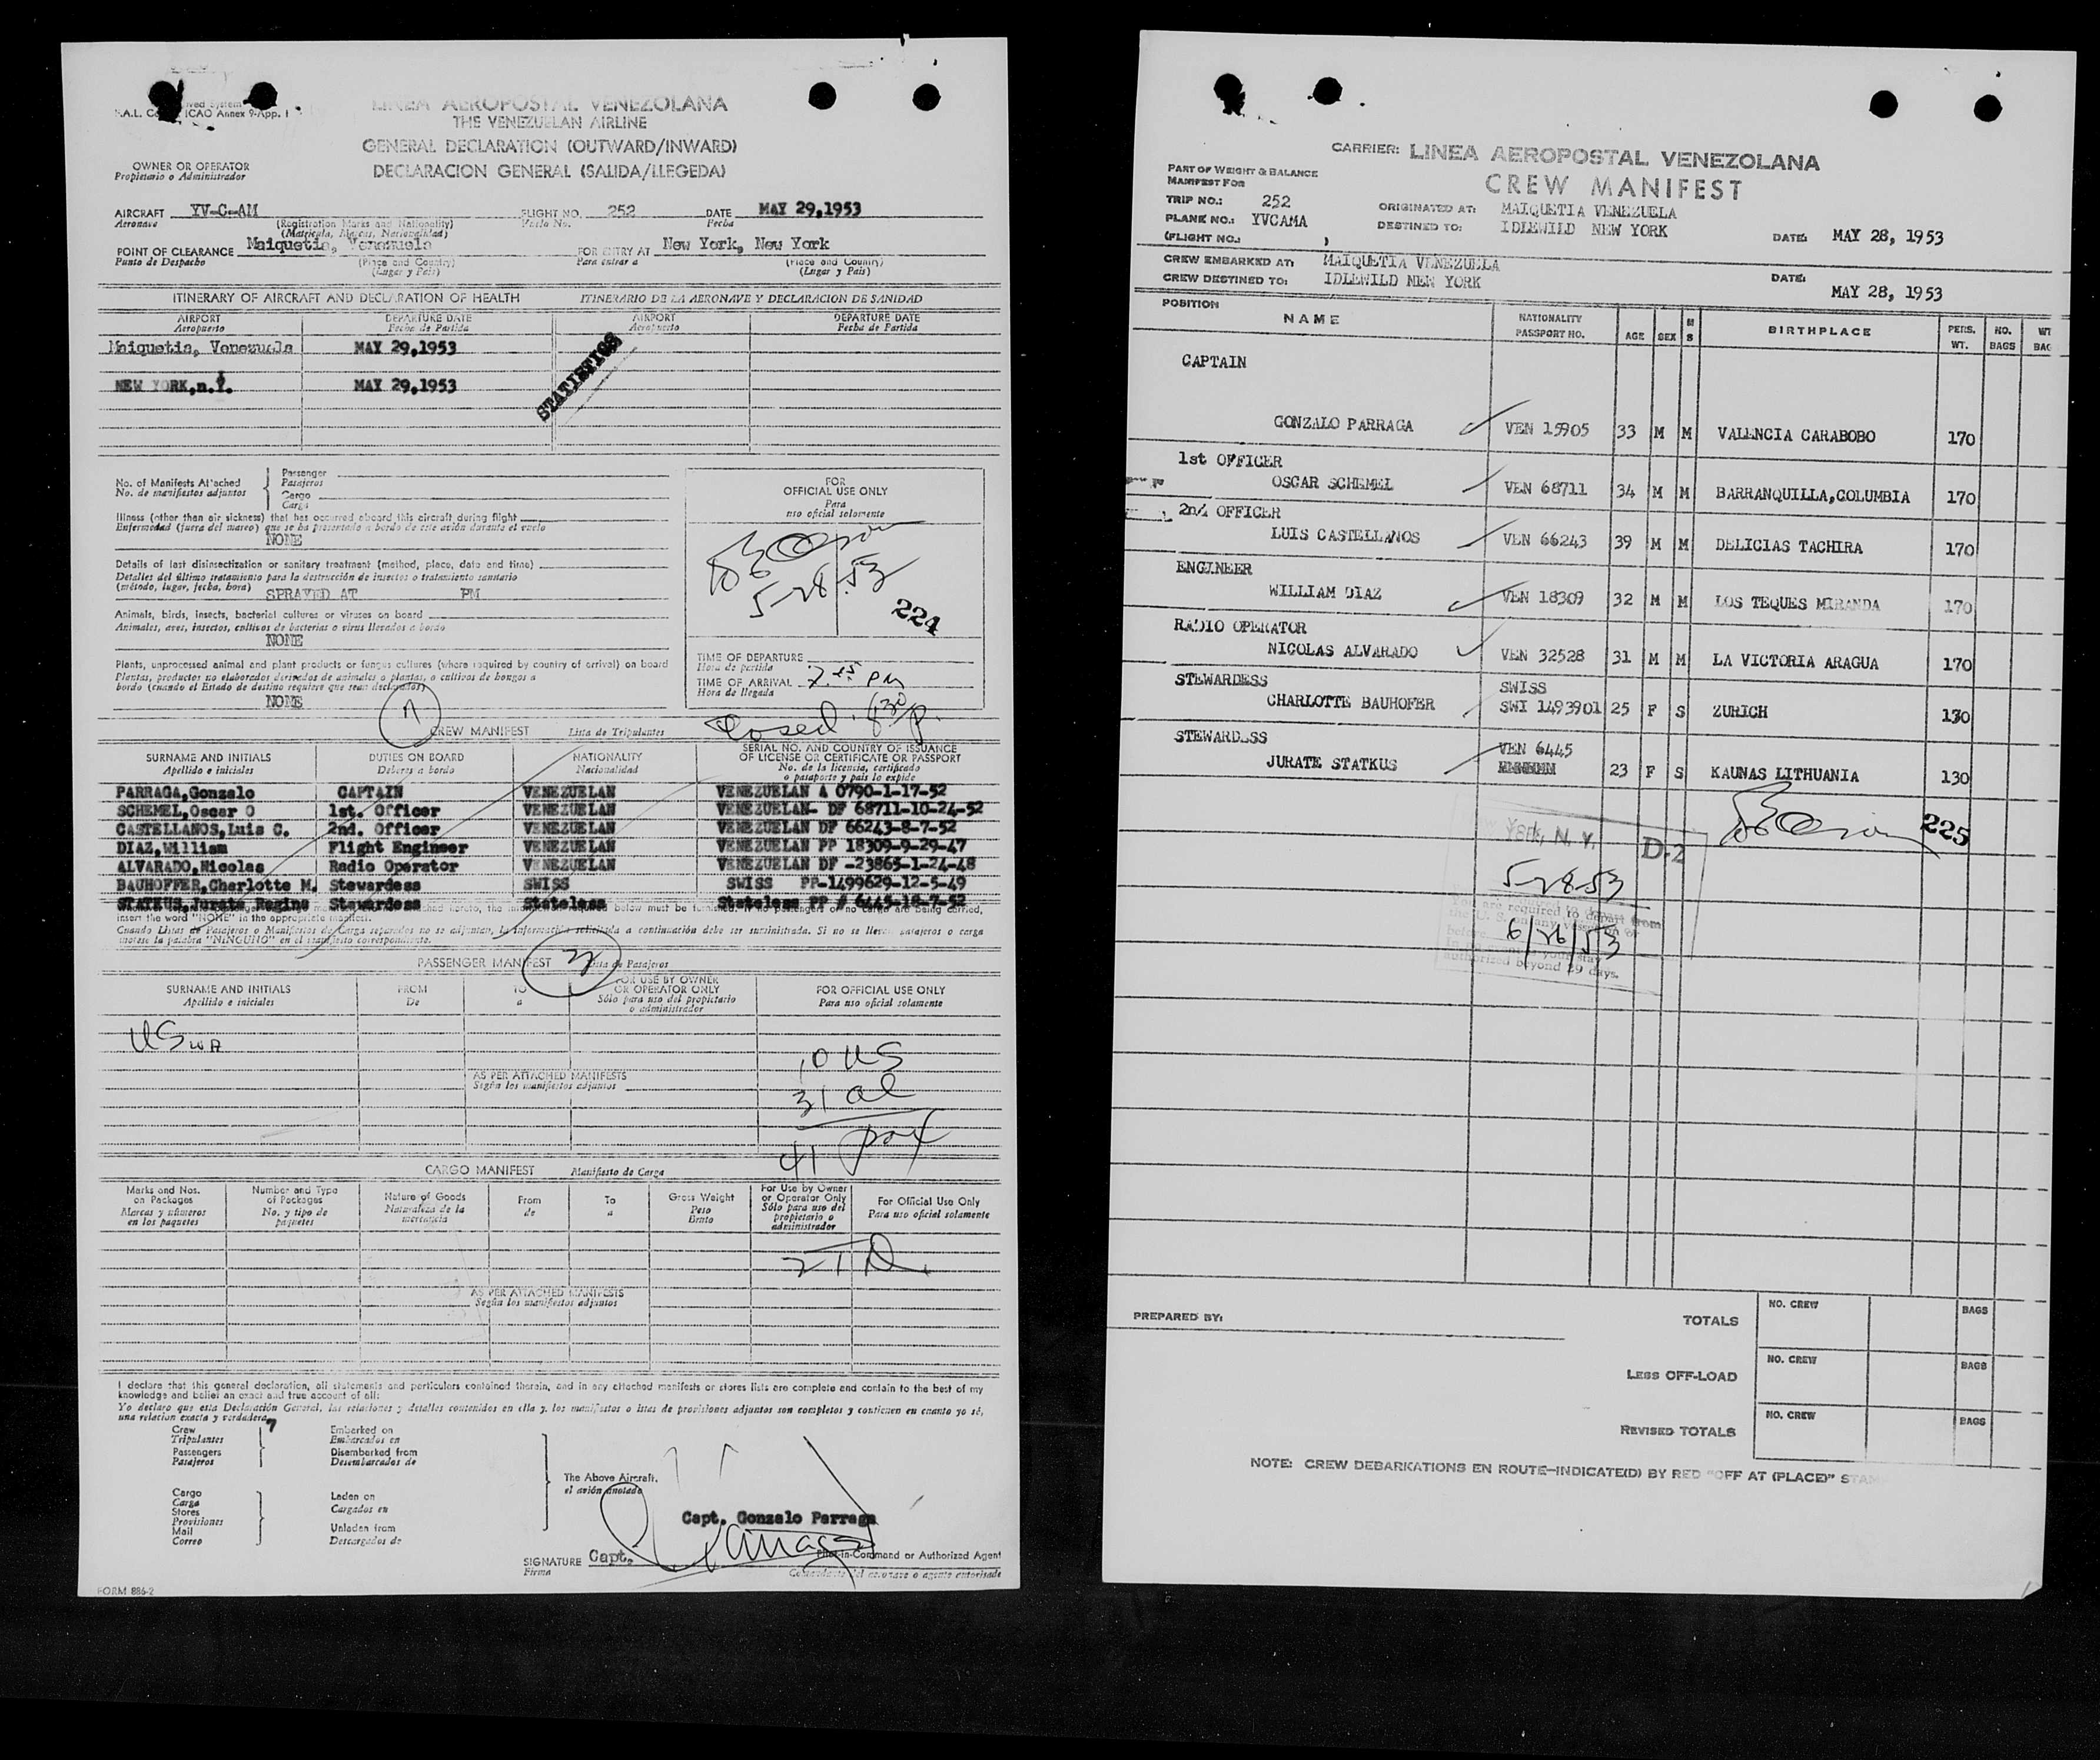 ICAO Annex 9-App. I
LINEA AEROPOSTAL VENEZOLANA
THE VENEZUELAN AIRLINE
GENERAL DECLARATION (OUTWARD/INWARD)
DECLARACION GENERAL (SALIDA/LLEGEDA)
OWNER OR OPERATOR
Propietario o Administrador
AIRCRAFT YV-C-AM FLIGHT NO. 252 DATE MAY 29,1953
Aeronave (Registration Marks and Nationality) Vuelo No. Fecha
(Matrícula, Marcas, Nacionalidad)
POINT OF CLEARANCE Maiquetia, Venezuela FOR ENTRY AT New York, New York
Punto de Despacho (Place and Country) Para entrar a (Place and Country)
(Lugar y País) (Lugar y País)
ITINERARY OF AIRCRAFT AND DECLARATION OF HEALTH ITINERARIO DE LA AERONAVE Y DECLARACION DE SANIDAD
AIRPORT DEPARTURE DATE AIRPORT DEPARTURE DATE
Aeropuerto Fecha de Partida Aeropuerto Fecha de Partida
Maiquetia, Venezuela MAY 29,1953
STATISTICS
NEW YORK,n.Y. MAY 29,1953
No. of Manifests Attached
No. de manifiestos adjuntos
Passenger
Pasajeros
Cargo
Carga
FOR
OFFICIAL USE ONLY
Para
uso oficial solamente
5-28-53
224
Illness (other than air sickness) that has occurred aboard this aircraft during flight
Enfermedad (fuera del mareo) que se ha presentado a bordo de este avión durante el vuelo
NONE
Details of last disinsectization or sanitary treatment (method, place, date and time)
Detalles del último tratamiento para la destrucción de insectos o tratamiento sanitario
(método, lugar, fecha, hora) SPRAYED AT PM
Animals, birds, insects, bacterial cultures or viruses on board
Animales, aves, insectos, cultivos de bacterias o virus llevados a bordo
NONE
Plants, unprocessed animal and plant products or fungus cultures (where required by country of arrival) on board
Plantas, productos no elaborados derivados de animales o plantas, o cultivos de hongos a
bordo (cuando el Estado de destino requiere que sean declarados)
NONE
TIME OF DEPARTURE
Hora de partida
TIME OF ARRIVAL 7 25 PM
Hora de llegada
Closed 8 30/P.
7
CREW MANIFEST Lista de Tripulantes
SURNAME AND INITIALS DUTIES ON BOARD NATIONALITY SERIAL NO. AND COUNTRY OF ISSUANCE
OF LICENSE OR CERTIFICATE OR PASSPORT
Apellido e iniciales Deberes a bordo Nacionalidad No. de la licencia, certificado
o pasaporte y país lo expide
PARRAGA,Gonzalo CAPTAIN VENEZUELAN VENEZUELAN A 0790-1-17-52
SCHEMEL,Oscar O 1st. Officer VENEZUELAN VENEZUELAN- DF 68711-10-24-52
CASTELLANOS,Luis C. 2nd. Officer VENEZUELAN VENEZUELAN DF 66243-8-7-52
DIAZ,William Flight Engineer VENEZUELAN VENEZUELAN PP 18309-9-29-47
ALVARADO,Nicolas Radio Operator VENEZUELAN VENEZUELAN DF -23865-1-24-48
BAUHOFFER,Charlotte M. Stewardess SWISS SWISS PP-1499629-12-5-49
STATKUS,Jurate Regina Stewardess Stateless Stateless PP # 6445-18-7-52
insert the word "NONE" in the appropriate manifest.
Cuando Listas de Pasajeros o Manifiestos de Carga separados no se adjuntan, la información solicitada a continuación debe ser suministrada. Si no se llevan pasajeros o carga
anotese la palabra "NINGUNO" en el manifiesto correspondiente.
PASSENGER MANIFEST Lista de Pasajeros
SURNAME AND INITIALS FROM TO FOR USE BY OWNER
OR OPERATOR ONLY FOR OFFICIAL USE ONLY
Apellido e iniciales De a Sólo para uso del propietario
o administrador Para uso oficial solamente
10 US
AS PER ATTACHED MANIFESTS
Según los manifiestos adjuntos
31 al
41 pax
CARGO MANIFEST Manifiesto de Carga
Marks and Nos.
on Packages
Marcas y números
en los paquetes
Number and Type
of Packages
No. y tipo de
paquetes
Nature of Goods
Naturaleza de la
mercancía
From
de
To
a
Gross Weight
Peso
Bruto
For Use by Owner
or Operator Only
Sólo para uso del
propietario o
administrador
For Official Use Only
Para uso oficial solamente
AS PER ATTACHED MANIFESTS
Según los manifiestos adjuntos
I declare that this general declaration, all statements and particulars contained therein, and in any attached manifests or stores lists are complete and contain to the best of my
knowledge and belief an exact and true account of all:
Yo declaro que esta Declaración General, las relaciones y detalles contenidos en ella y los manifiestos o listas de provisiones adjuntos son completos y contienen en cuanto yo sé,
una relacion exacta y verdadera
Crew 7
Tripulantes
Passengers
Pasajeros
Embarked on
Embarcados en
Disembarked from
Desembarcados de
Cargo
Carga
Stores
Provisiones
Mail
Correo
Laden on
Cargados en
Unladen from
Descargados de
The Above Aircraft.
el avión anotado
Capt. Gonzalo Parraga
SIGNATURE Capt. Pilot-in-Command or Authorized Agent
Firma Comandante del aeronave o agente autorizado
FORM 886-2
CARRIER: LINEA AEROPOSTAL VENEZOLANA
CREW MANIFEST
PART OF WEIGHT & BALANCE
MANIFEST FOR
TRIP NO.: 252 ORIGINATED AT: MAIQUETIA VENEZUELA
PLANK NO.: YVCAMA DESTINED TO: IDLEWILD NEW YORK DATE: MAY 28, 1953
(FLIGHT NO.: )
CREW EMBARKED AT: MAIQUETIA VENEZUELA DATE:
CREW DESTINED TO: IDLEWILD NEW YORK MAY 28, 1953
POSITION NAME NATIONALITY
PASSPORT NO. AGE SEX M S BIRTHPLACE PERS.
WT. NO.
BAGS WT
BAG
CAPTAIN
GONZALO PARRAGA VEN 15905 33 M M VALENCIA CARABOBO 170
1st OFFICER
OSCAR SCHEMEL VEN 68711 34 M M BARRANQUILLA,COLUMBIA 170
2nd OFFICER
LUIS CASTELLANOS VEN 66243 39 M M DELICIAS TACHIRA 170
ENGINEER
WILLIAM DIAZ VEN 18309 32 M M LOS TEQUES MIRANDA 170
RADIO OPERATOR
NICOLAS ALVARADO VEN 32528 31 M M LA VICTORIA ARAGUA 170
STEWARDESS SWISS
CHARLOTTE BAUHOFER SWI 1493901 25 F S ZURICH 130
STEWARDESS VEN 6445
JURATE STATKUS 23 F S KAUNAS LITHUANIA 130
225
York, N. Y. D-2
5-28-53
You are required to depart from
6/26/53
authorized beyond 29 days.
PREPARED BY:
TOTALS NO. CREW BAGS
LESS OFF-LOAD NO. CREW BAGS
REVISED TOTALS NO. CREW BAGS
NOTE: CREW DEBARKATIONS EN ROUTE—INDICATE(D) BY RED "OFF AT (PLACE)" STAM